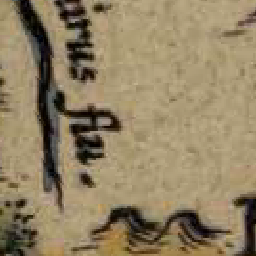 irus flu.